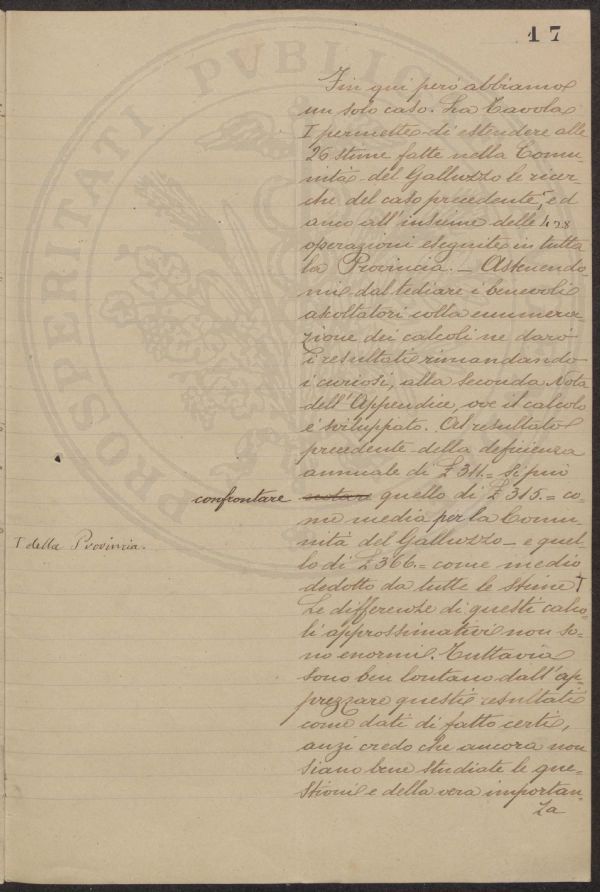 17
PROSPERITATI PVBLIC
Fin qui però abbiamo
un solo caso. La Tavola
I permette di estendere alle
26 stime fatte nella Comu-
nità del Galluzzo le ricer-
che del caso precedente, ed
anco all'insieme delle 428
operazioni eseguite in tutta
la Provincia. — Astenendo-
mi dal tediare i benevoli
ascoltatori colla enumera
zione dei calcoli ne darò
i resultati rimandando
i curiosi, alla seconda Nota
dell'Appendice, ove il calcolo
è sviluppato. Al resultato
precedente della deficienza
annuale di £ 311.= si può
confrontare notare quello di £ 315.= co-
me media per la Comu-
nità del Galluzzo — e quel-
lo di £ 366.= come medio
dedotto da tutte le stime T
T della Provincia.
Le differenze di questi calco-
li approssimativi non so-
no enormi. Tuttavia
sono ben lontano dall'ap-
prezzare questi resultati
come dati di fatto certi,
anzi credo che ancora non
siano bene studiate le que-
stioni e della vera importan-
za